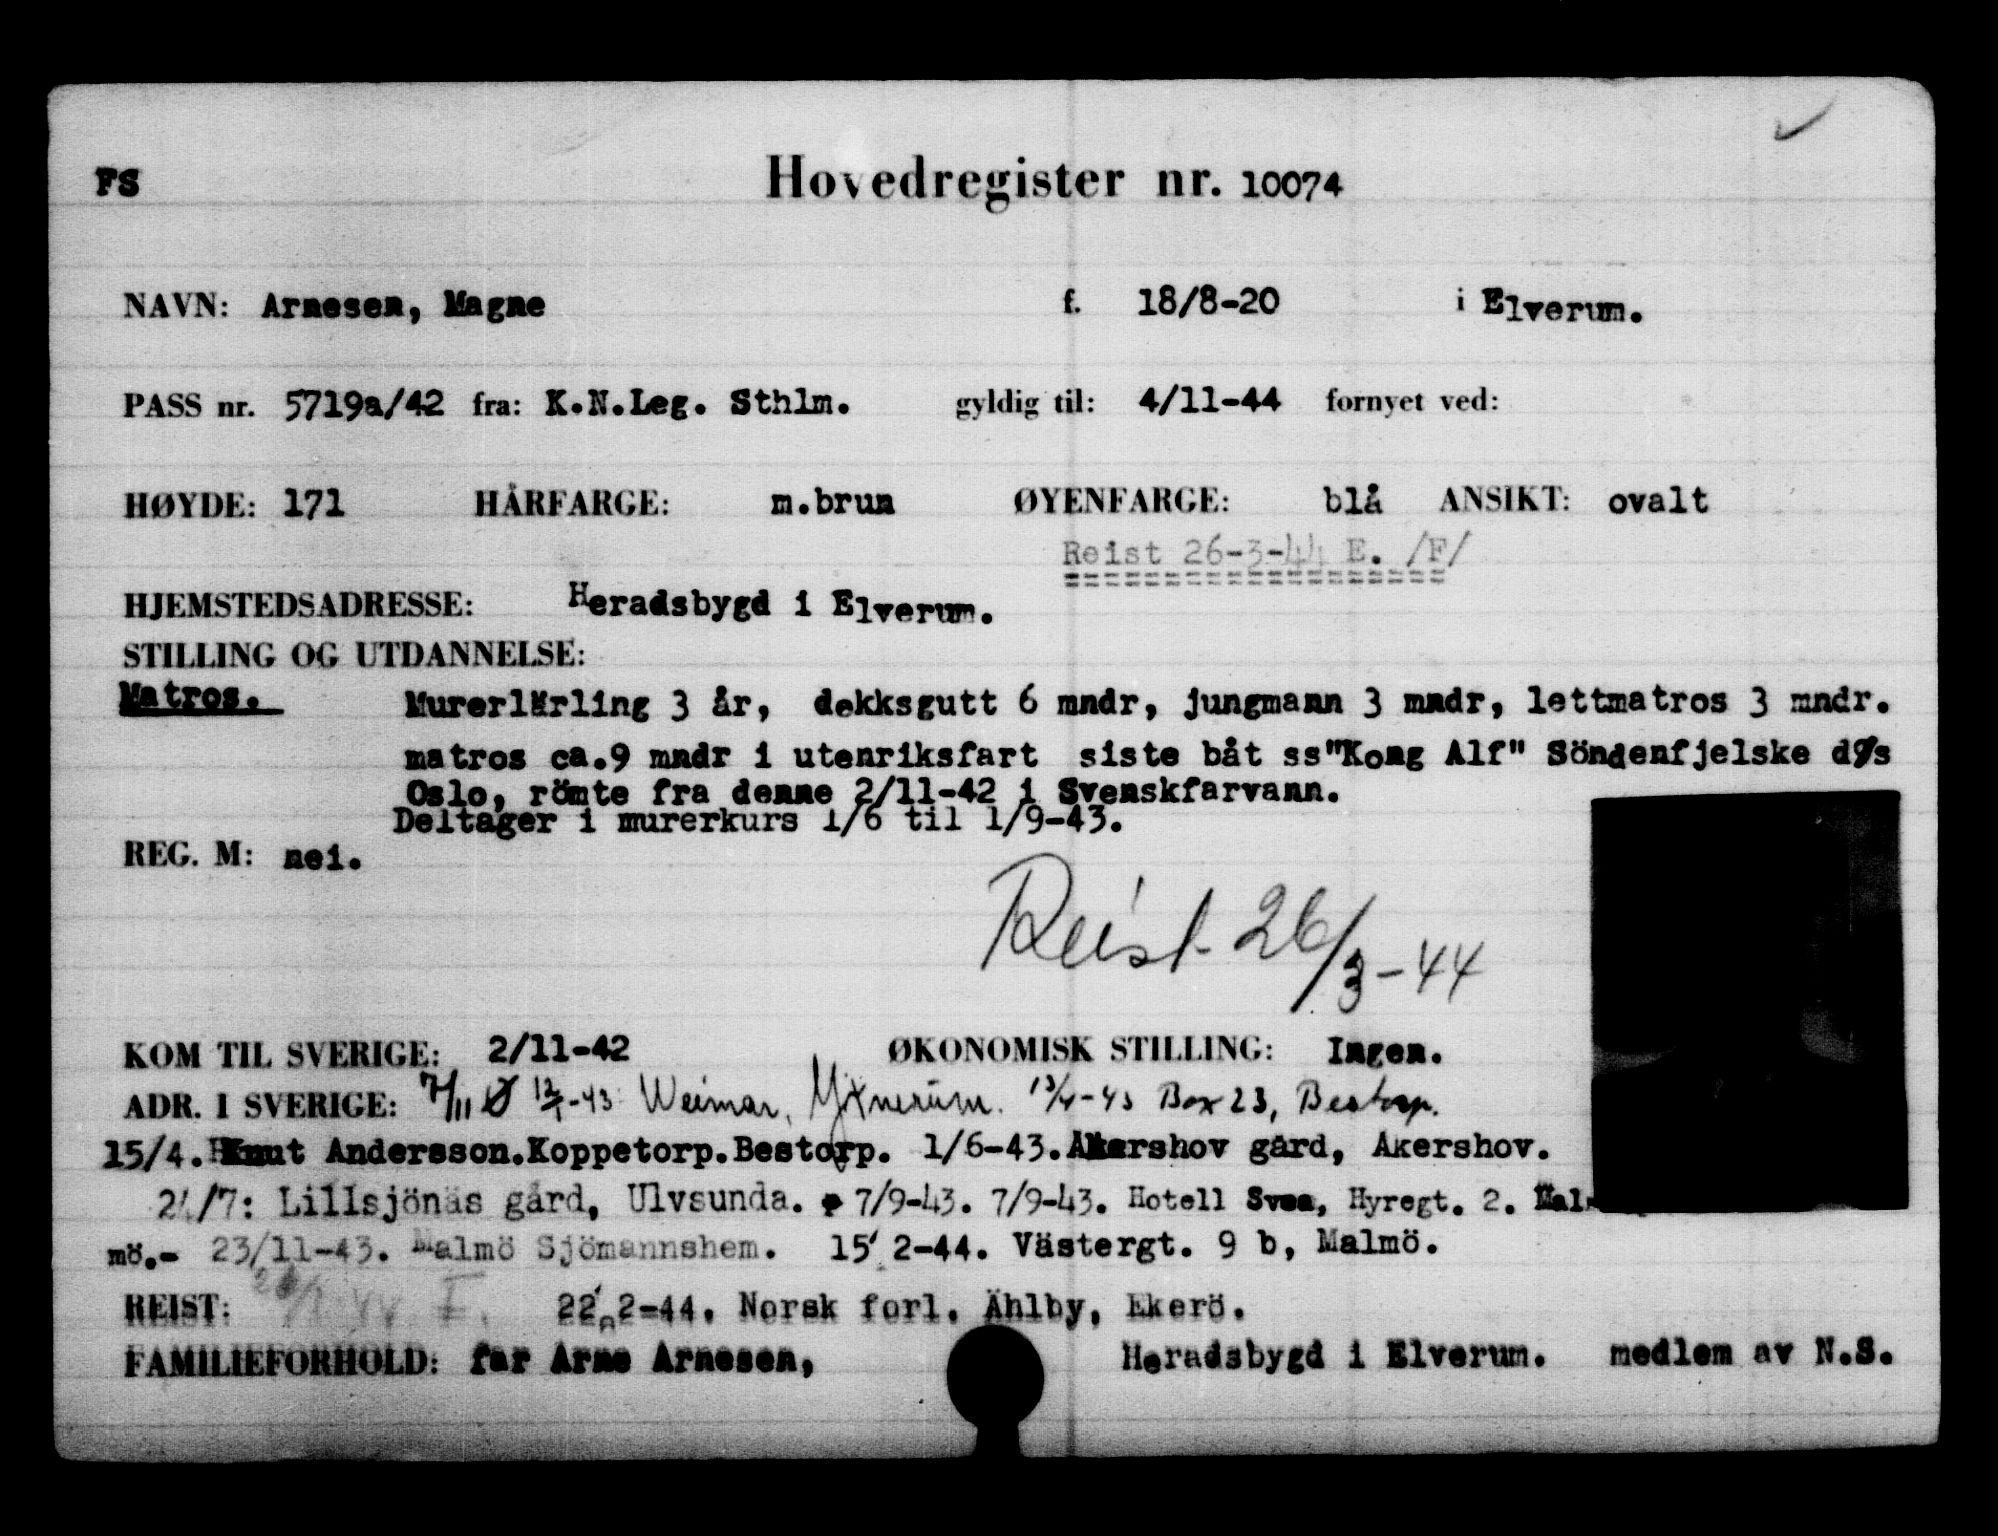 FS Hovedregister nr. 10074
NAVN: Arnesen, Magne f. 18/8-20 i Elverum.
PASS nr. 5719a/42 fra: K.N.Leg. Sthlm. gyldig til: 4/11-44 fornyet ved:
HØYDE: 171 HÅRFARGE: m.brun ØYENFARGE: blå ANSIKT: ovalt
Reist 26-3-44 E. /F/
HJEMSTEDSADRESSE: Heradsbygd i Elverum.
STILLING OG UTDANNELSE:
Matros. Murerlärling 3 år, dekksgutt 6 mndr, jungmann 3 mndr, lettmatros 3 mndr.
matros ca.9 mndr i utenriksfart siste båt ss"Kong Alf" Söndenfjelske d/s
Oslo, römte fra denne 2/11-42 i Svenskfarvann.
Deltager i murerkurs 1/6 til 1/9-43.
REG. M: nei.
Reist 26/3-44
KOM TIL SVERIGE: 2/11-42 ØKONOMISK STILLING: Ingen.
ADR. I SVERIGE: 7/11 Ø 12/1-43: Weimar, 13/4-43 Box 23, Bestorp.
15/4. Knut Andersson.Koppetorp.Bestorp. 1/6-43. Åkershov gård, Åkershov.
/7: Lillsjönäs gård, Ulvsunda. 7/9-43. 7/9-43. Hotell Svea, Hyregt. 2. Mal-
mö.- 23/11-43. Malmö Sjömannshem. 15/2-44. Västergt. 9 b, Malmö.
REIST: 22/2-44. Norsk forl. Ählby, Ekerö.
FAMILIEFORHOLD: far Arne Arnesen, Heradsbygd i Elverum. medlem av N.S.